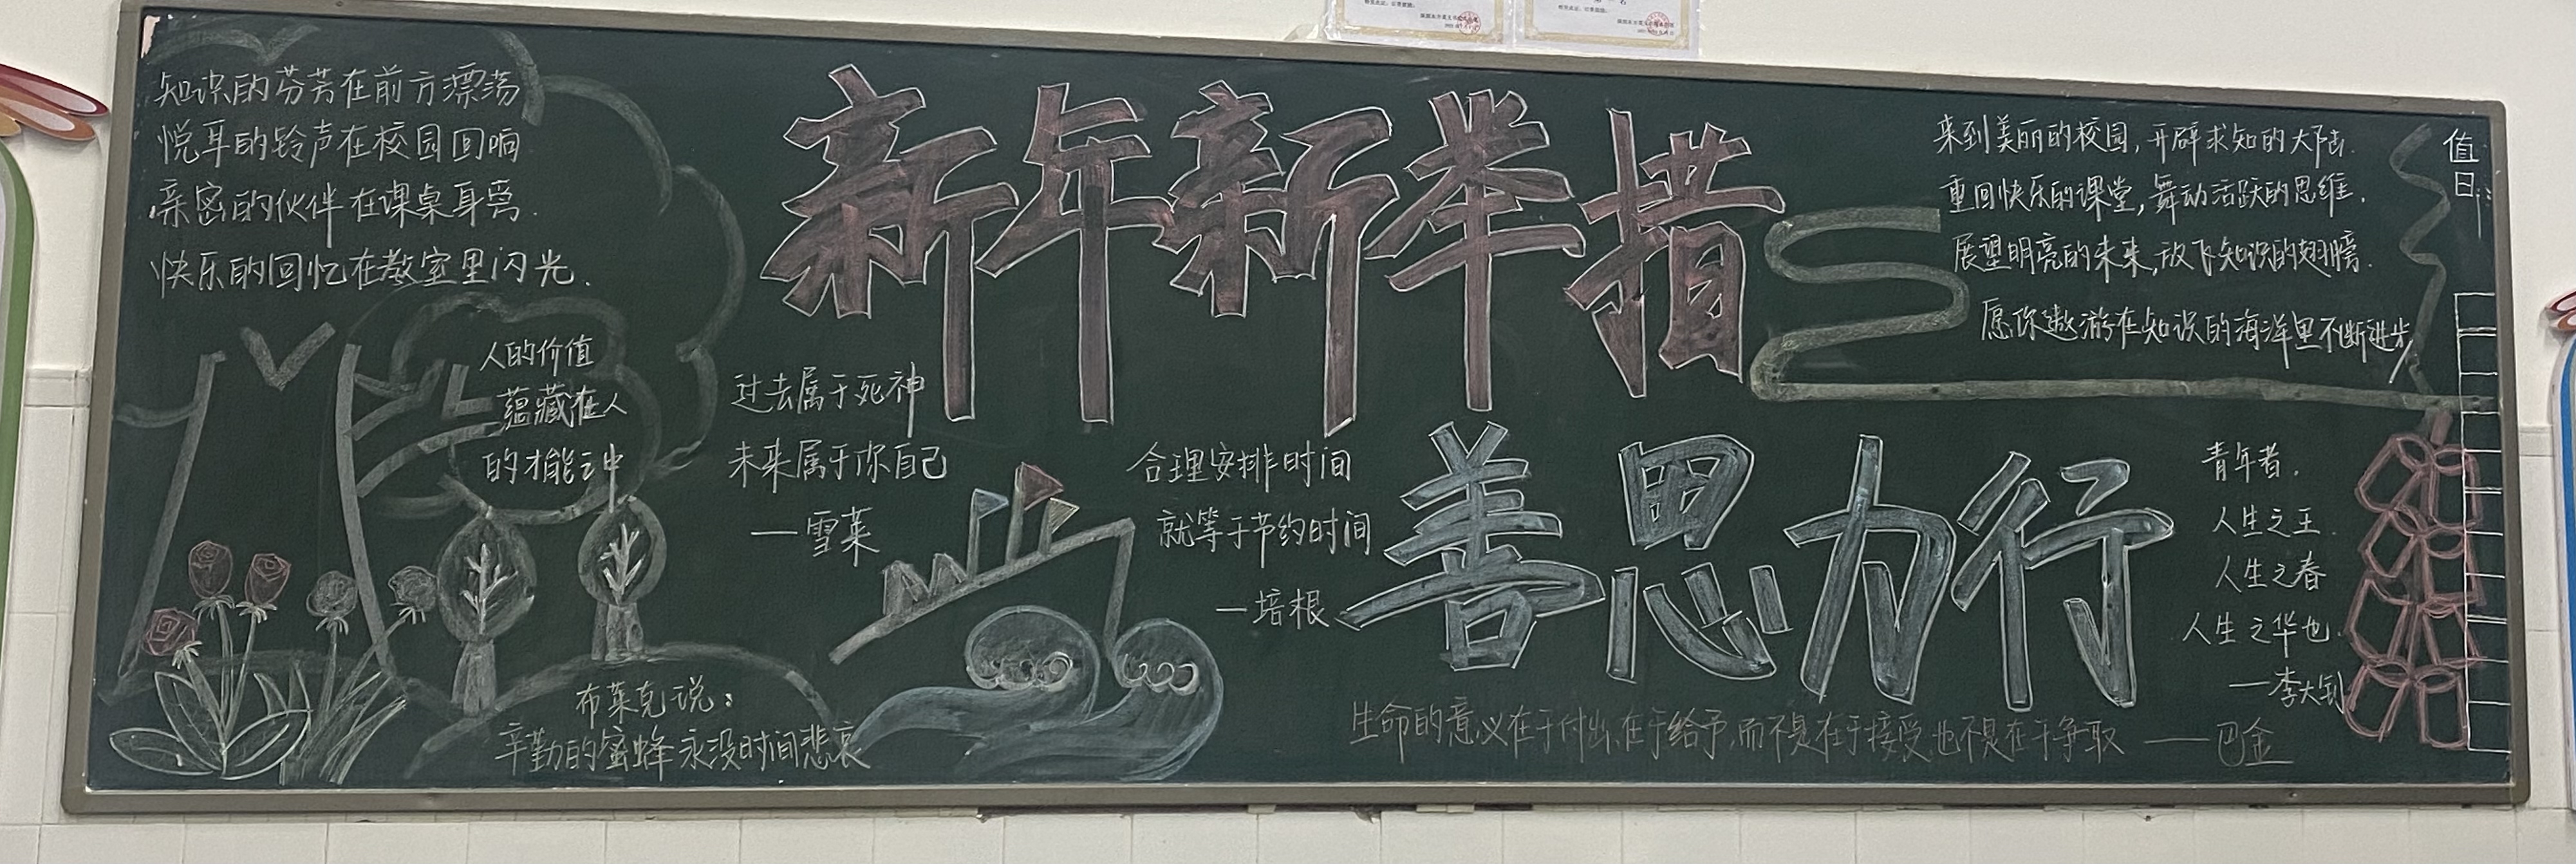 知识的芬芳在前方漂荡
悦耳的铃声在校园回响
亲密的伙伴在课桌身旁.
快乐的回忆在教室里闪光.
新年新举措
来到美丽的校园,开辟求知的大陆.
重回快乐的课堂,舞动活跃的思维.
展望明亮的未来,放飞知识的翅膀.
愿你遨游在知识的海洋里不断进步
值日:
人的价值
蕴藏在人
的才能之中
过去属于死神
未来属于你自己
—雪莱
合理安排时间
就等于节约时间
—培根
善思力行
青年者.
人生之王.
人生之春
人生之华也.
—李大钊
布莱克说:
辛勤的蜜蜂永没时间悲哀
生命的意义在于付出,在于给予,而不是在于接受,也不是在于争取 ——巴金